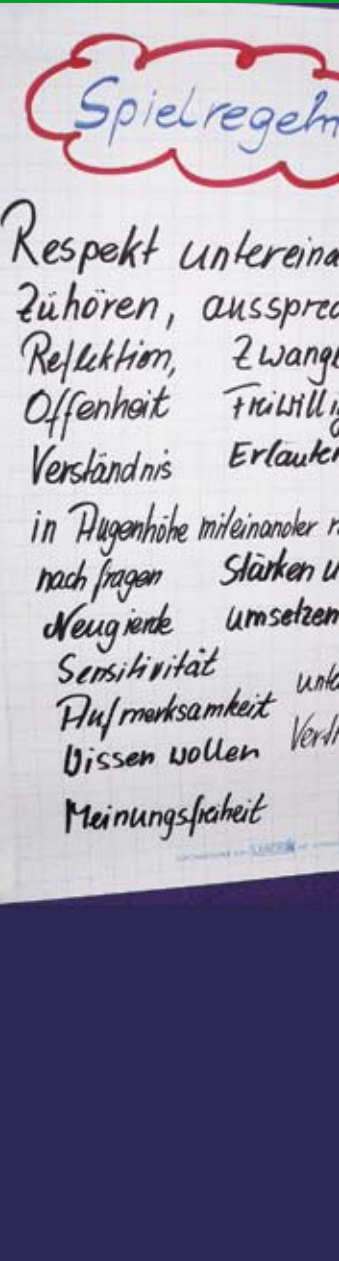 Spielregeln
Respekt untereina
Zühören, ausspre
Reflektion, Zwang
Offenheit Freiwilli
Verständnis Erläuter
in Augenhöhe miteinander r
nach fragen Stärken u
Neugierde umsetzen
Sensitivität
Aufmerksamkeit unte
Wissen wollen
Meinungsfreiheit